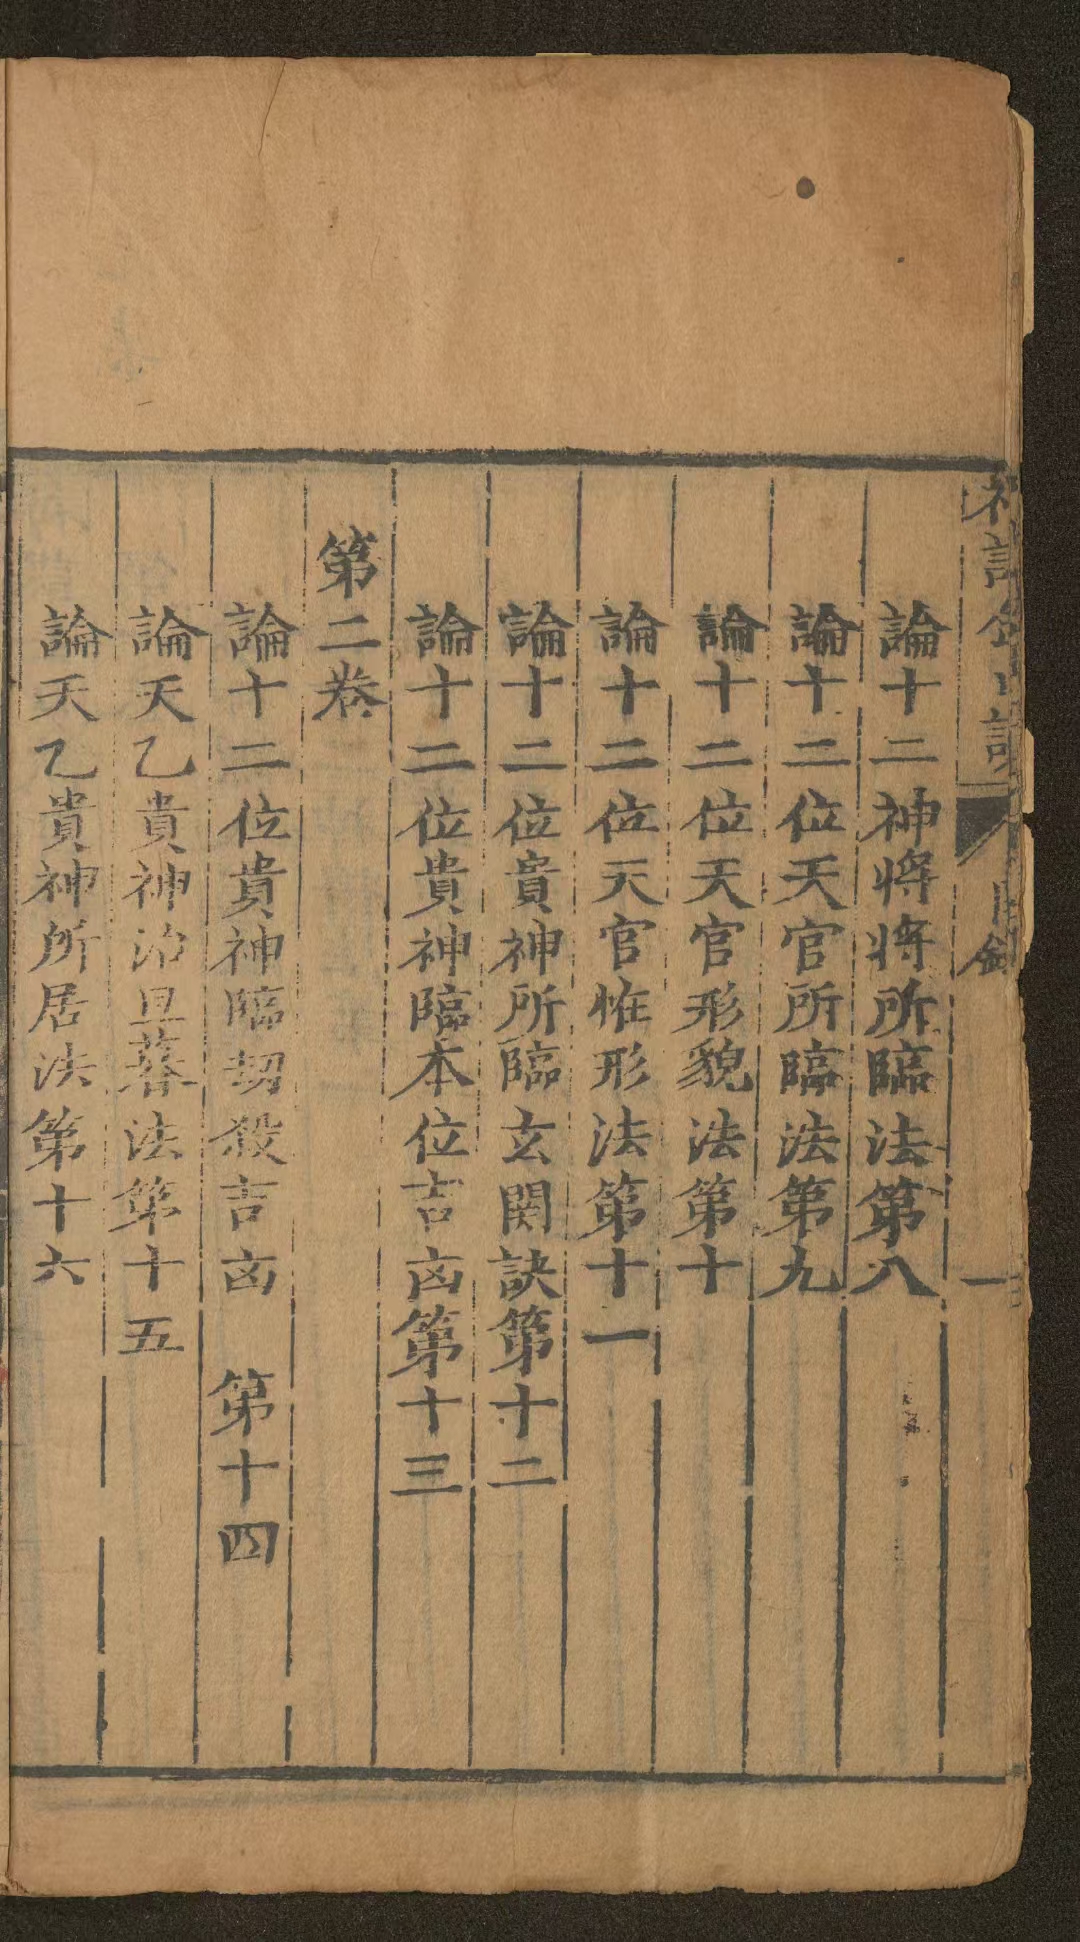 論十二神将將所臨法第八
論十二位天官所臨法第九
論十二位天官形貌法第十
論十二位天官惟形法第十一
論十二位貴神所臨玄関訣第十二
論十二位貴神臨本位吉凶第十三
第二卷
論十二位貴神臨劫殺吉凶 第十四
論天乙貴神治旦暮法第十五
論天乙貴神所居法第十六